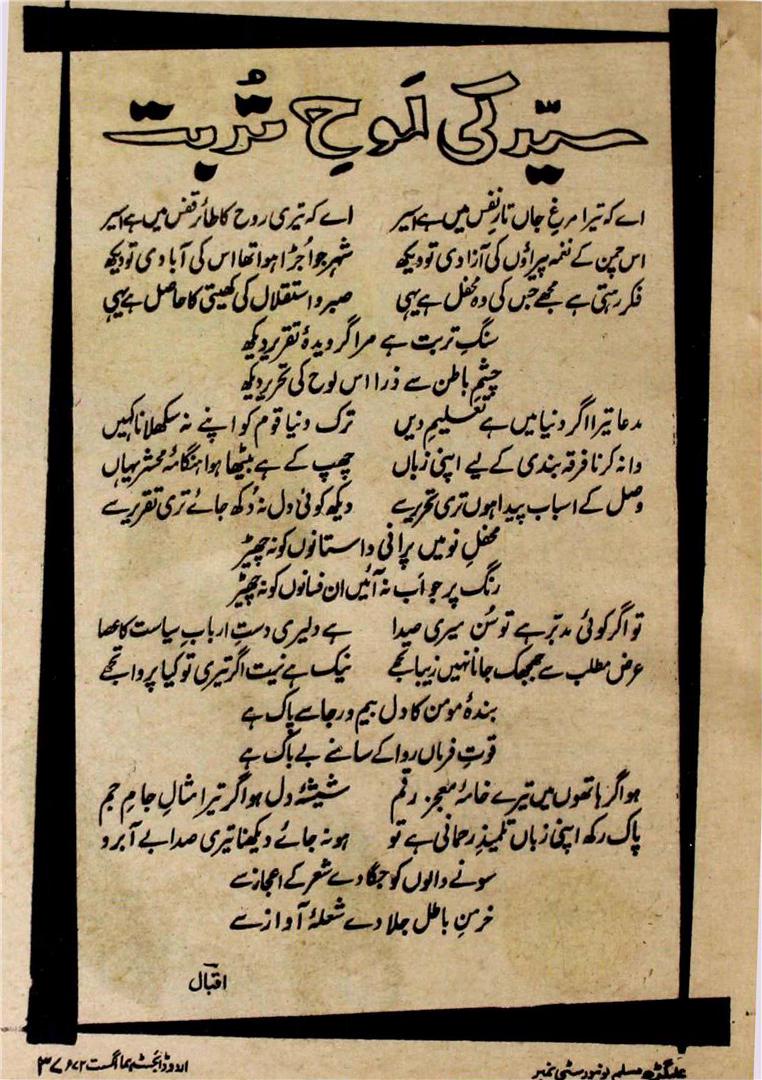 سیّد کی لَوحِ تُربت
اے کہ تیرا مرغِ جاں تارِ نفس میں ہے اسیر اے کہ تیری روح کا طائر قفس میں ہے اسیر
اس چمن کے نغمہ پیراؤں کی آزادی تو دیکھ شہر جو اُجڑا ہوا تھا اس کی آبادی تو دیکھ
فکر رہتی ہے مجھے جس کی وہ محفل ہے یہی صبر و استقلال کی کھیتی کا حاصل ہے یہی
سنگِ تربت ہے مرا گرویدۂ تقریر دیکھ
چشمِ باطن سے ذرا اس لوح کی تحریر دیکھ
مدعا تیرا اگر دنیا میں ہے تعلیمِ دیں ترک دنیا قوم کو اپنے نہ سکھلانا کہیں
وا نہ کرنا فرقہ بندی کے لیے اپنی زباں چھپ کے ہے بیٹھا ہوا ہنگامۂ محشر یہاں
وصل کے اسباب پیدا ہوں تری تحریر سے دیکھ کوئی دل نہ دُکھ جائے تری تقریر سے
محفلِ نو میں پرانی داستانوں کو نہ چھیڑ
رنگ پر جو اَب نہ آئیں ان فسانوں کو نہ چھیڑ
تو اگر کوئی مدبّر ہے تو سُن میری صدا ہے دلیری دستِ اربابِ سیاست کا عصا
عرض مطلب سے جھجھک جانا نہیں زیبا تجھے نیک ہے نیت اگر تیری تو کیا پروا تجھے
بندۂ مومن کا دل بیم و رجا سے پاک ہے
قوتِ فرماں روا کے سامنے بے باک ہے
ہو اگر ہاتھوں میں تیرے خامۂ معجز رقم شیشۂ دل ہو اگر تیرا مثالِ جامِ جم
پاک رکھ اپنی زباں تلمیذِ رحمانی ہے تو ہو نہ جائے دیکھنا تیری صدا بے آبرو
سونے والوں کو جگا دے شعر کے اعجاز سے
خرمنِ باطل جلا دے شعلۂ آواز سے
اقبال
علیگڑھ مسلم یونیورسٹی نمبر اردو ڈائجسٹ ہما اگست ۷۲ء ۳۷